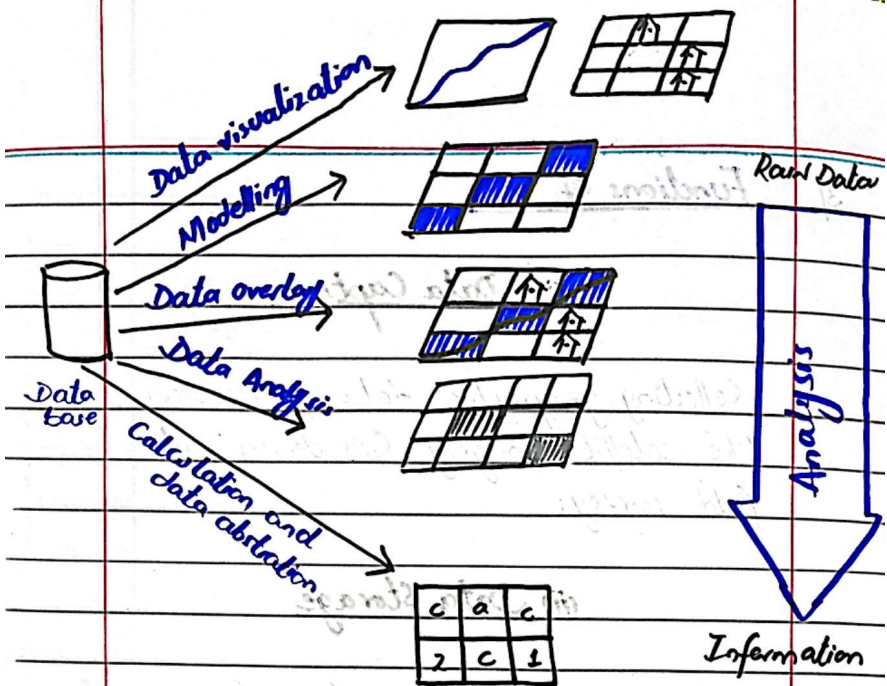 Data visualization
Modelling
Data overlay
Data Analysis
Calculation and
data abstration
Data
base
Raw Data
Analysis
Information
c a c
2 c 1